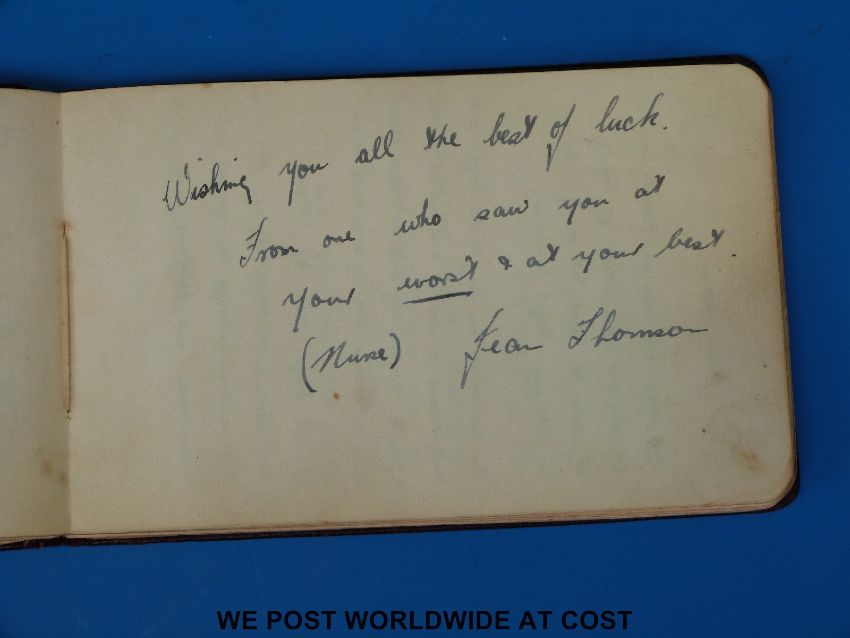 Wishing you all the best of luck.
From one who saw you at
your worst & at your best.
(Nurse) Jean Thomson
WE POST WORLDWIDE AT COST